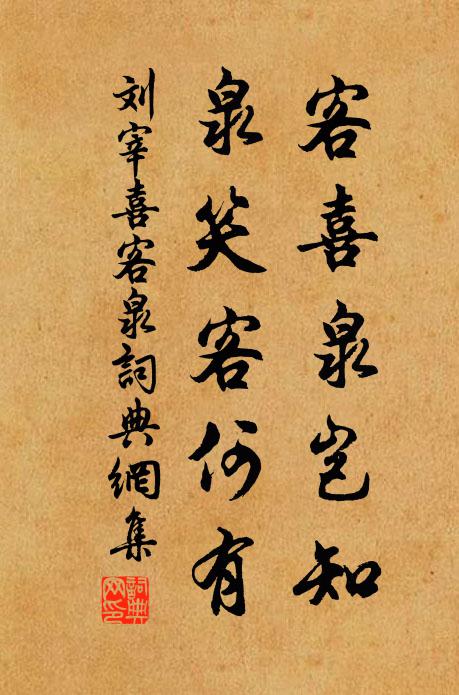 客喜泉岂知
泉笑客何有
刘宰喜客泉詞典網集
詞典网印